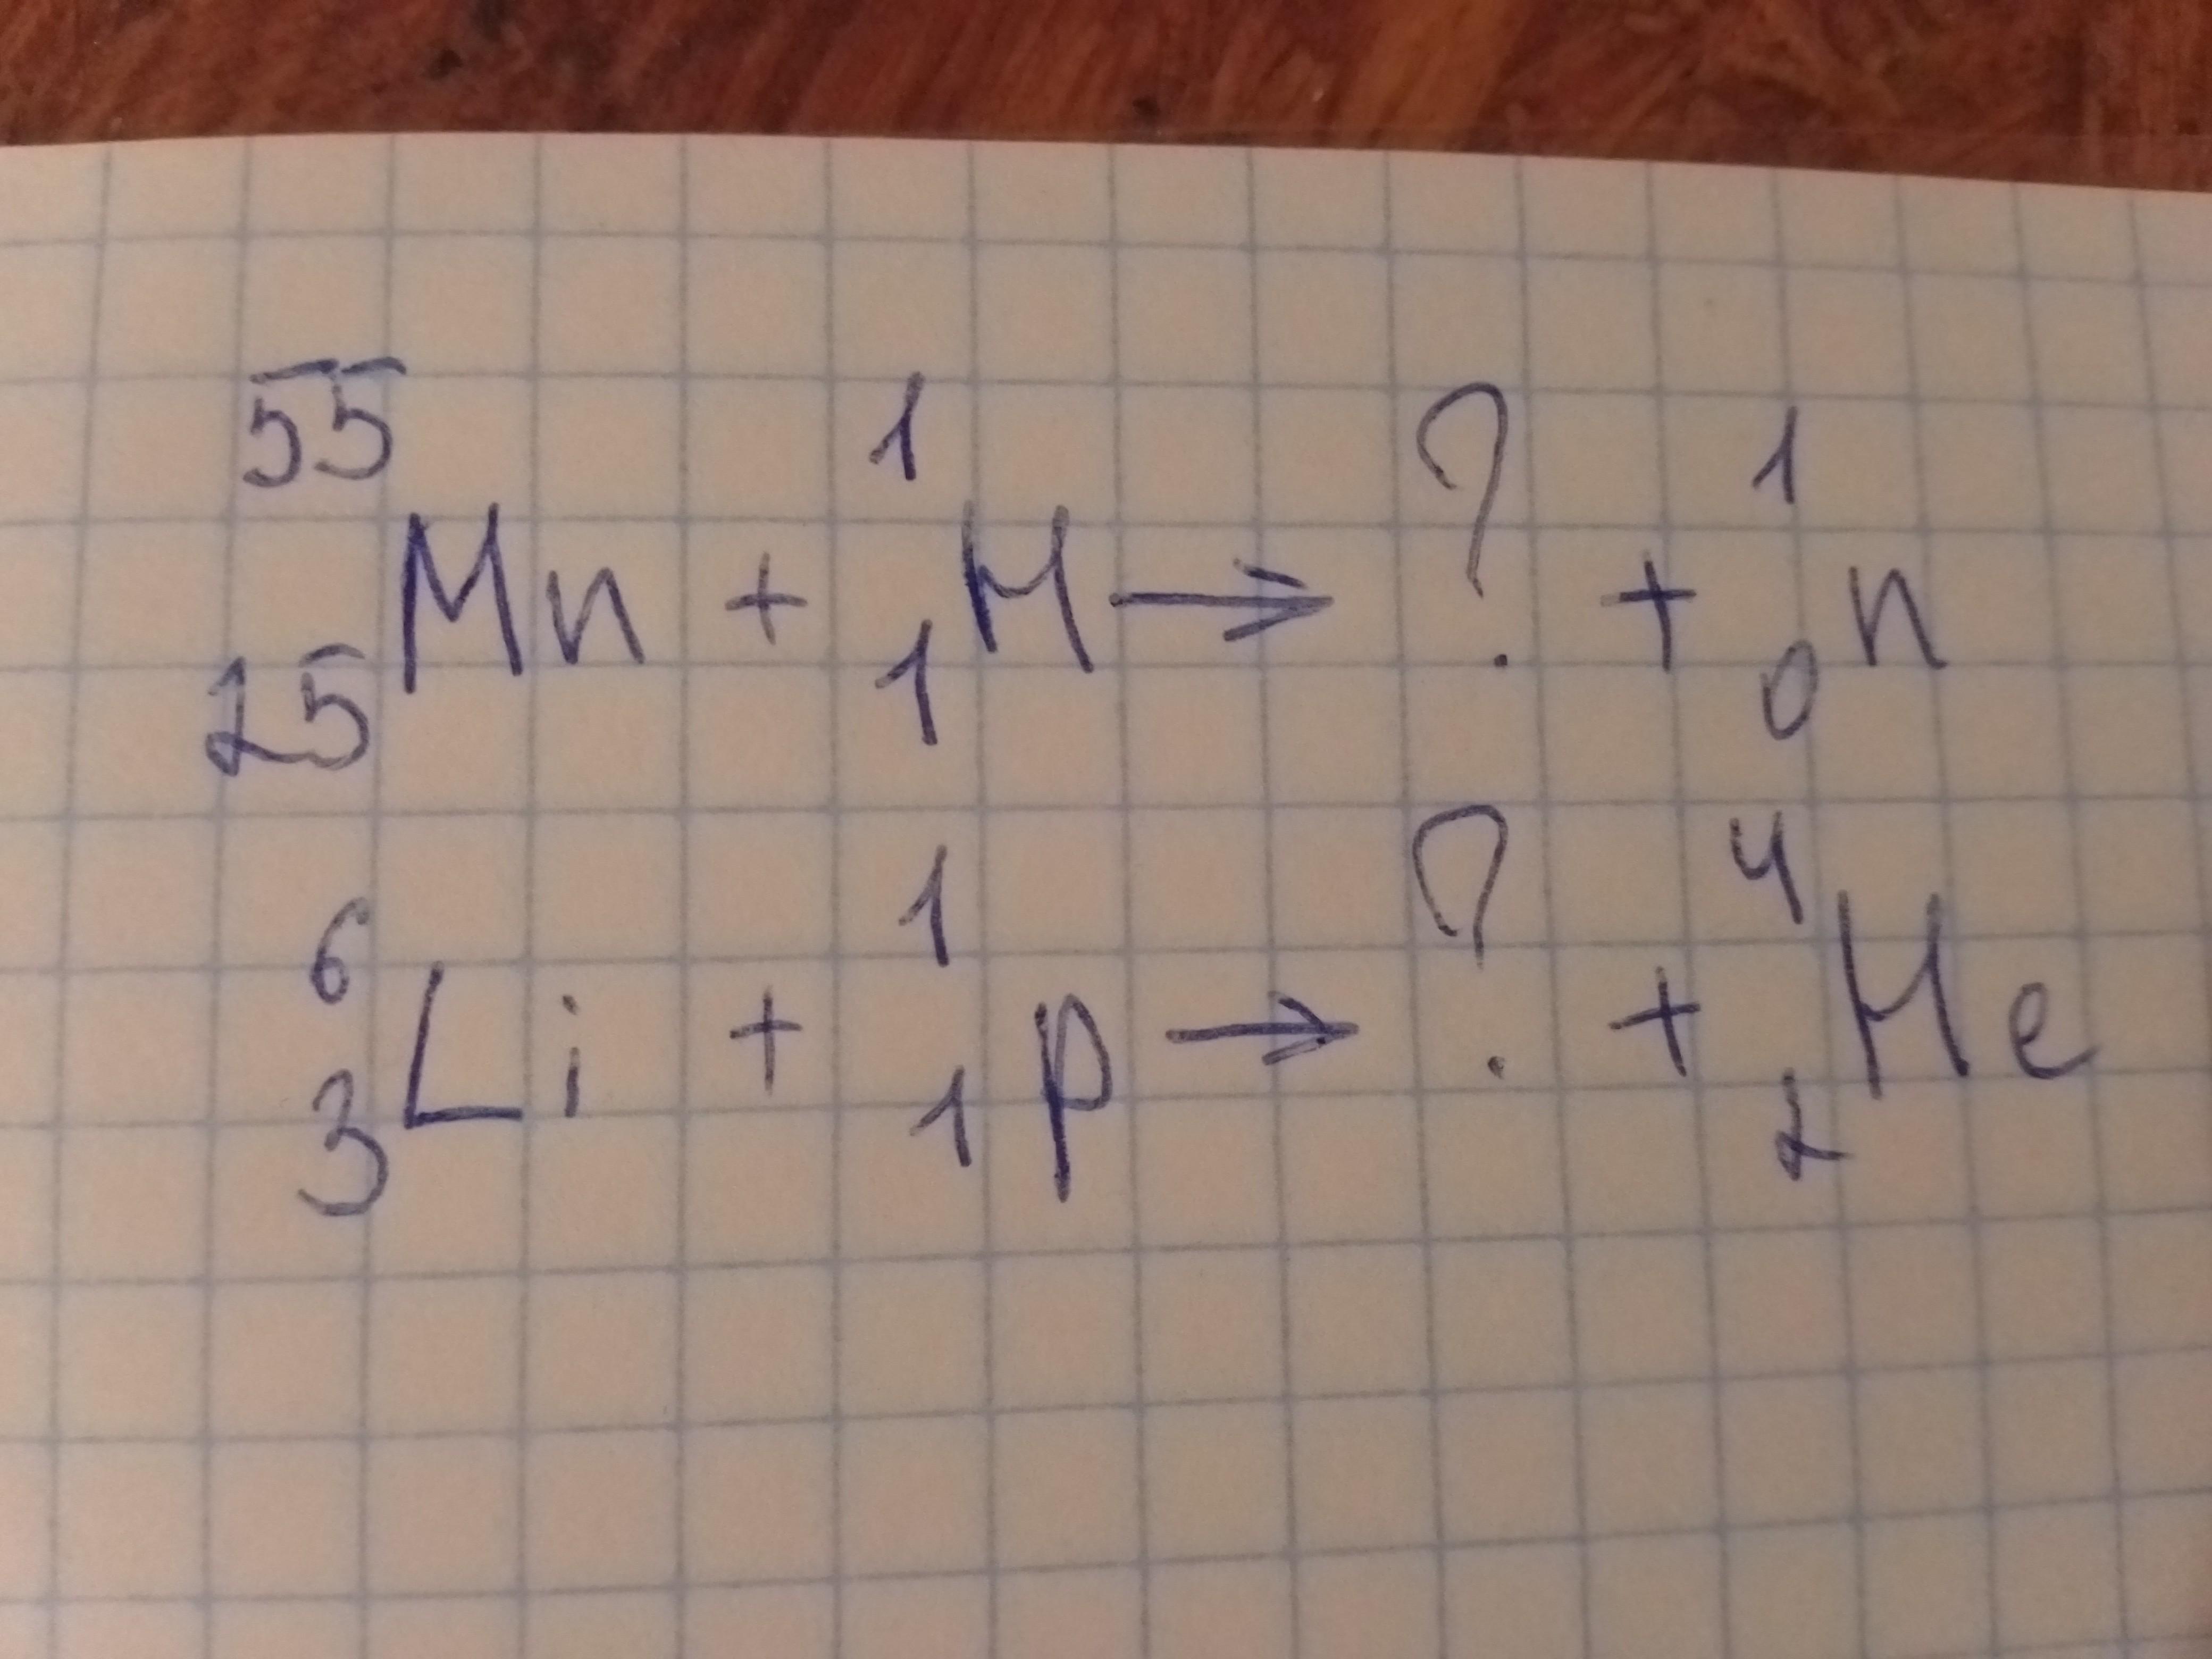 ⁵⁵₂₅Mn + ¹₁H → ? + ¹₀n
⁶₃Li + ¹₁p → ? + ⁴₂He